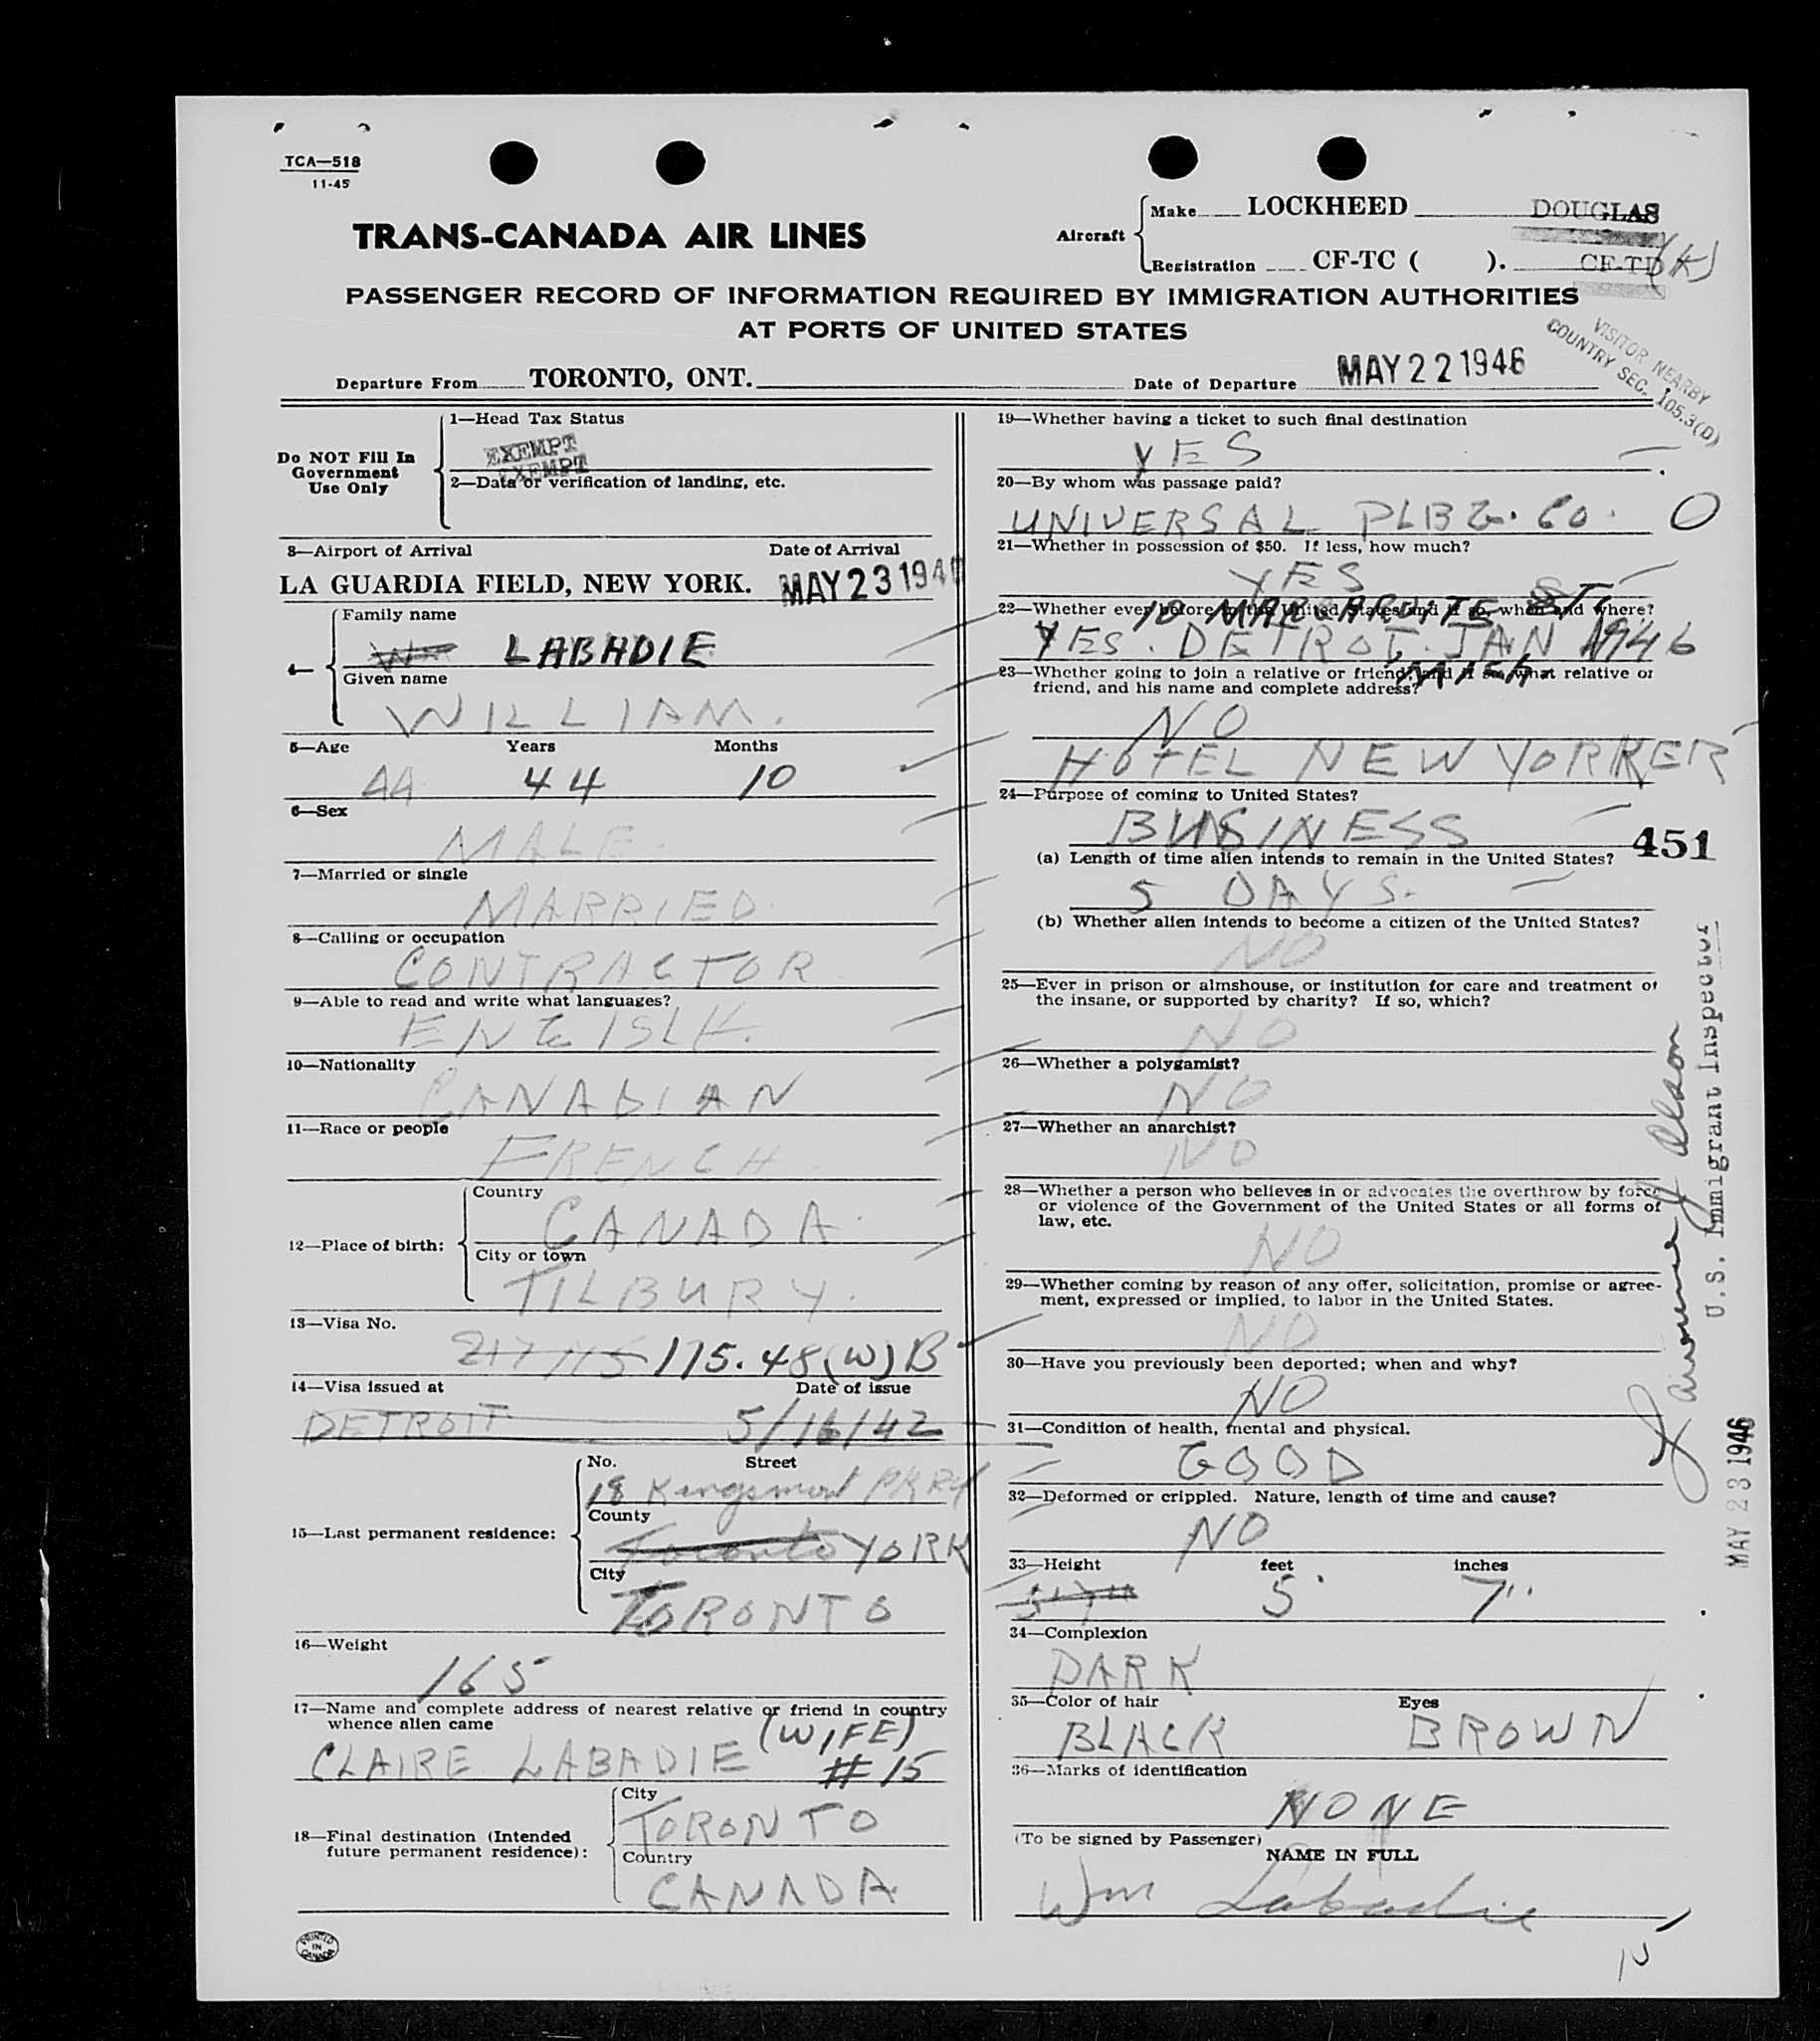 TCA—518
11-45
TRANS-CANADA AIR LINES
Aircraft
Make LOCKHEED DOUGLAS
Registration CF-TC ( ). CF-TD (K)
PASSENGER RECORD OF INFORMATION REQUIRED BY IMMIGRATION AUTHORITIES
AT PORTS OF UNITED STATES
VISITOR NEARBY
COUNTRY SEC. 105.3(D)
Departure From TORONTO, ONT. Date of Departure MAY 22 1946
Do NOT Fill In
Government
Use Only
1—Head Tax Status
EXEMPT
EXEMPT
2—Data or verification of landing, etc.
3—Airport of Arrival Date of Arrival
LA GUARDIA FIELD, NEW YORK. MAY 23 194
4—
Family name
LABADIE
Given name
WILLIAM.
5—Age Years Months
44 44 10
6—Sex
MALE.
7—Married or single
MARRIED.
8—Calling or occupation
CONTRACTOR
9—Able to read and write what languages?
ENGISLH.
10—Nationality
CANADIAN
11—Race or people
FRENCH.
12—Place of birth:
Country
CANADA.
City or town
TILBURY.
13—Visa No.
175.48(W)B
14—Visa issued at Date of issue
DETROIT 5/16/42
15—Last permanent residence:
No. Street
18 Kingsmount PKRY
County
Toronto YORK
City
TORONTO
16—Weight
165
17—Name and complete address of nearest relative or friend in country
whence alien came
(WIFE)
CLAIRE LABADIE #15
18—Final destination (Intended
future permanent residence):
City
TORONTO
Country
CANADA
PRINTED
IN
CANADA
19—Whether having a ticket to such final destination
YES
20—By whom was passage paid?
UNIVERSAL PLBG. CO. O
21—Whether in possession of $50. If less, how much?
YES
22—Whether ever before in the United States and if so, when and where?
10 MARGARUITE ST.
YES. DETROT. JAN 1946
MICH.
23—Whether going to join a relative or friend; and if so, what relative or
friend, and his name and complete address?
NO
HOTEL NEW YORKER
24—Purpose of coming to United States?
BUSINESS
451
(a) Length of time alien intends to remain in the United States?
5 DAYS.
(b) Whether alien intends to become a citizen of the United States?
NO
25—Ever in prison or almshouse, or institution for care and treatment of
the insane, or supported by charity? If so, which?
NO
26—Whether a polygamist?
NO
27—Whether an anarchist?
NO
28—Whether a person who believes in or advocates the overthrow by force
or violence of the Government of the United States or all forms of
law, etc.
NO
29—Whether coming by reason of any offer, solicitation, promise or agree-
ment, expressed or implied, to labor in the United States.
NO
30—Have you previously been deported; when and why?
NO
31—Condition of health, mental and physical.
GOOD
32—Deformed or crippled. Nature, length of time and cause?
NO
33—Height feet inches
5'7" 5' 7"
34—Complexion
DARK
35—Color of hair Eyes
BLACK BROWN
36—Marks of identification
NONE
(To be signed by Passenger)
NAME IN FULL
Wm Labadie
U.S. Immigrant Inspector
MAY 23 1946